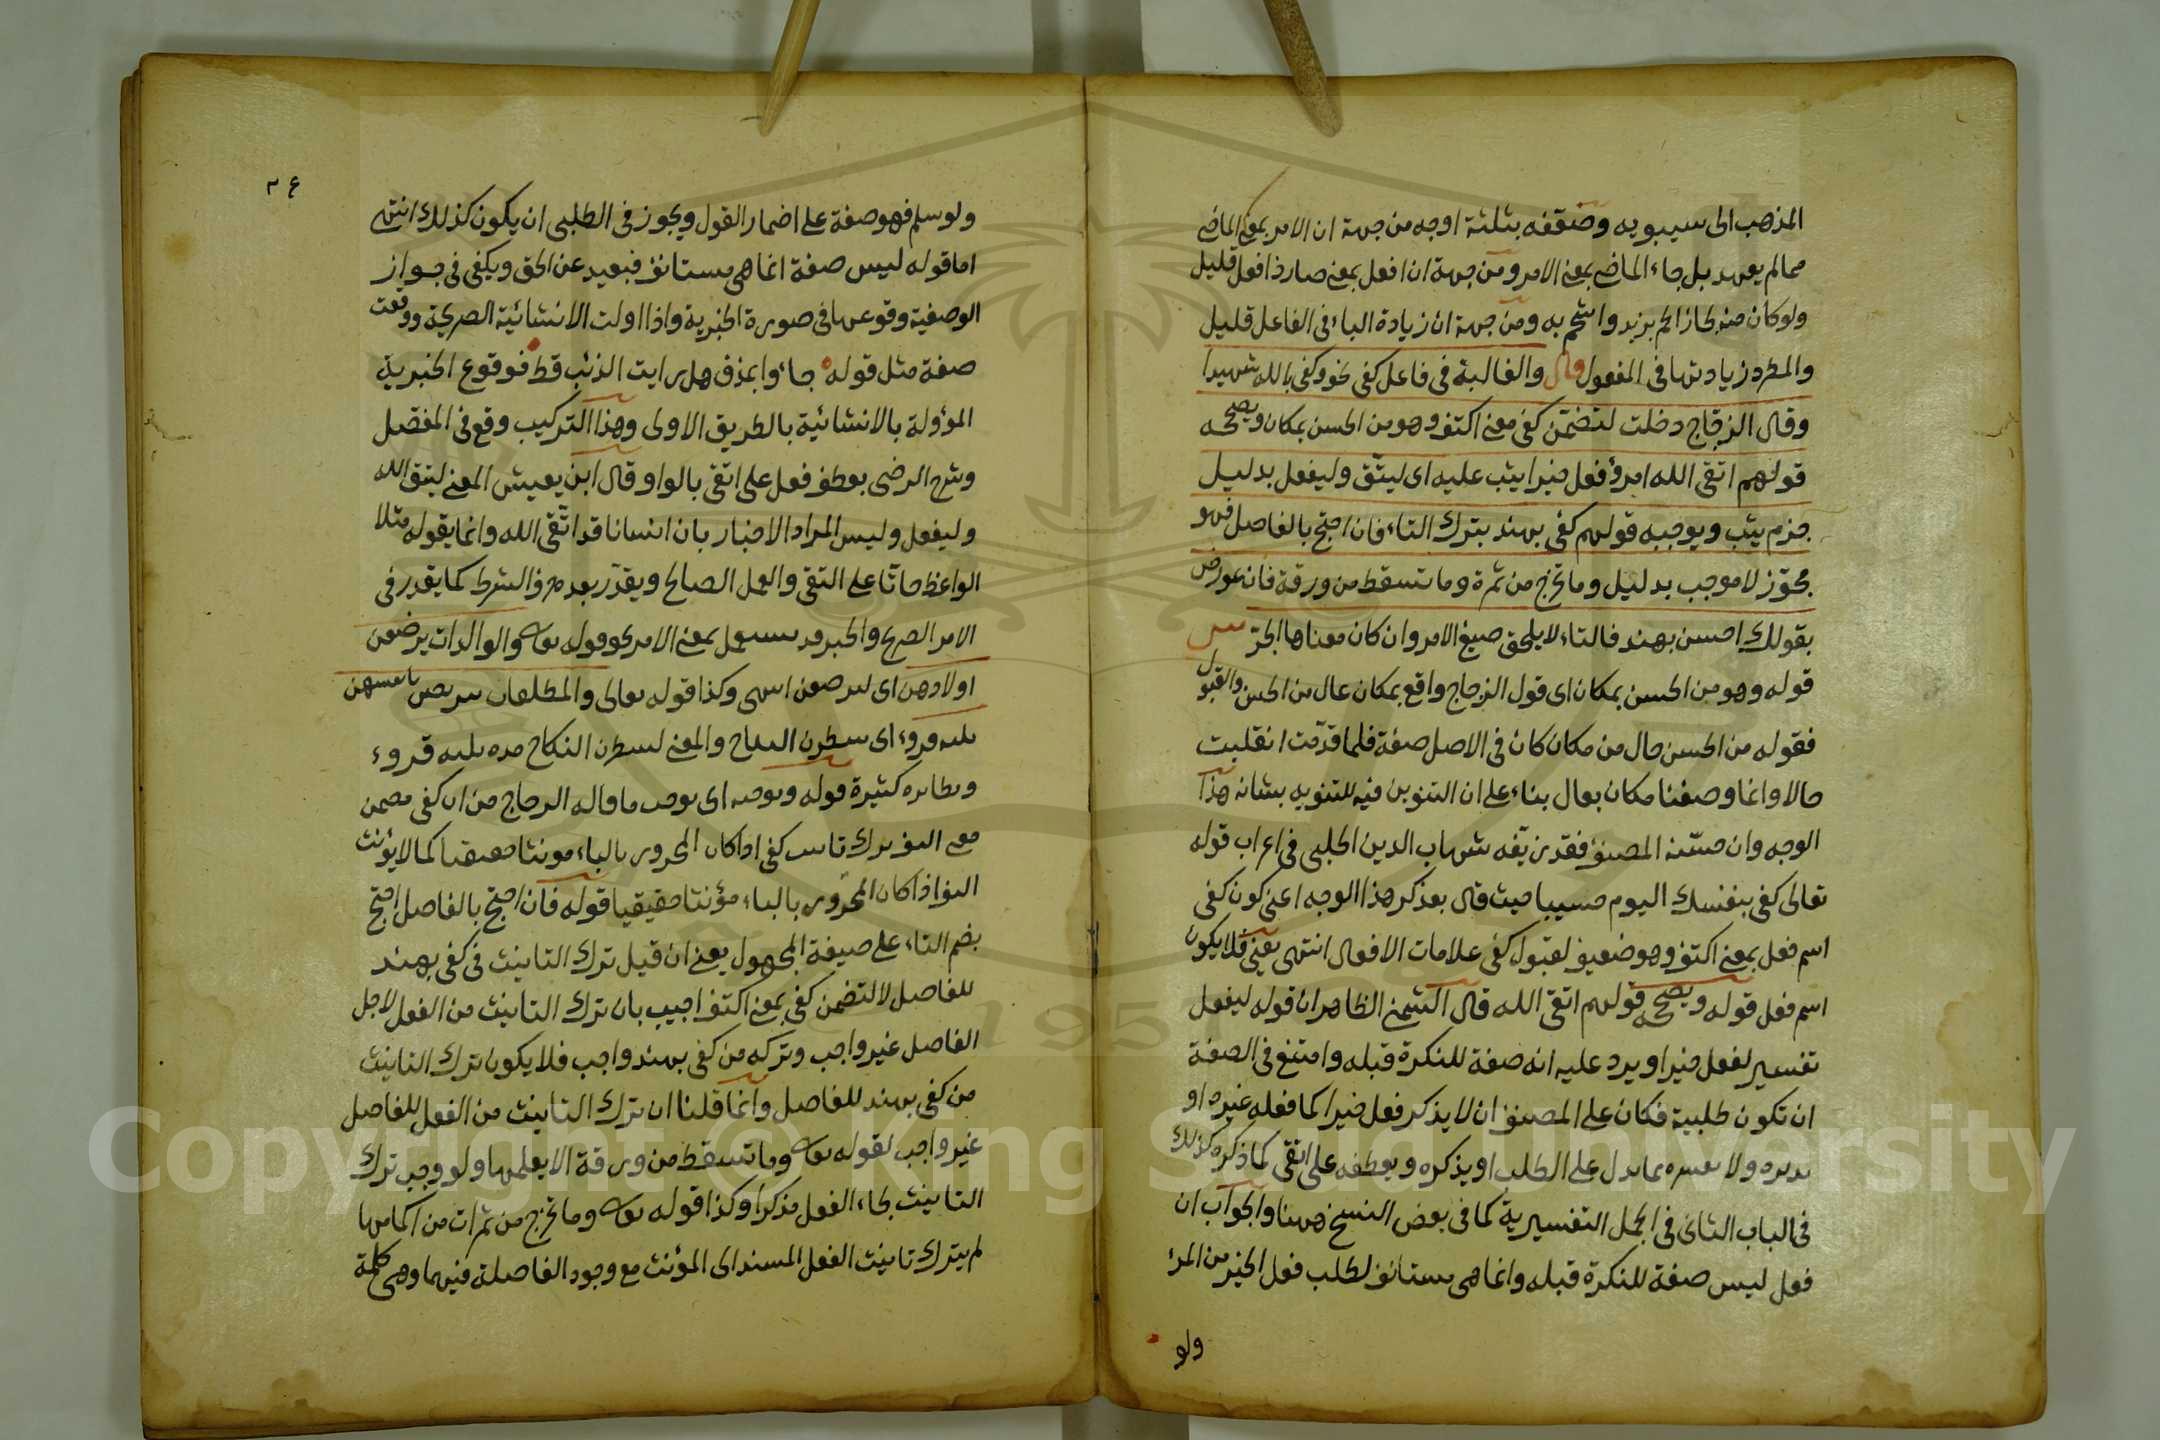 المذهب الى سيبويه وضعّفه بثلثة اوجه من جهة ان الامر بمعنى الماضى
مما لم يعهد بل جاء الماضى بمعنى الامر ومن جهة ان افعل بمعنى صار ذا فعل قليل
ولو كان منه لجاز الحم بزيد واشحم به ومن جهة ان زيادة الباء فى الفاعل قليل
والمطرد زيادتها فى المفعول قال والغالبة فى فاعل كفى نحو وكفى بالله شهيدا
وقال الزجاج دخلت لتضمّن كفى معنى اكتف وهو من الحسن بمكان ويصححه
قولهم اتقى الله امرؤ فعل خيرا يثب عليه اى ليتّق وليفعل بدليل
جزم يثب ويوجبه قولهم كفى بهند بترك التاء فان احتج بالفاصل فهو
مجوّز لا موجب بدليل وما تخرج من ثمرة وما تسقط من ورقة فان عورض
بقولك احسن بهند فالتاء لا يلحق صيغ الامر وان كان معناها الخبر
قوله وهو من الحسن بمكان اى قول الزجاج واقع بمكان عال من الحسن والقبول
فقوله من الحسن حال من مكان كان فى الاصل صفة فلما قدّمت انقلبت
حالا وانما وصفنا مكان بعال بناء على ان التنوين فيه للتنويه بشانه هذا
الوجه وان حسّنه المصنف فقد زيّفه شهاب الدين الحلبى فى اعراب قوله
تعالى كفى بنفسك اليوم حسيبا حيث قال بعد ذكر هذا الوجه اعنى كون كفى
اسم فعل بمعنى اكتف وهو ضعيف لقبول كفى علامات الافعال انتهى يعنى فلا يكون
اسم فعل قوله ويصححه قولهم اتقى الله قال الشمنى الظاهر ان قوله ليفعل
تفسير لفعل خيرا ويرد عليه انه صفة للنكرة قبله وامتنع فى الصفة
ان تكون طلبية فكان على المصنف ان لا يذكر فعل خيرا كما فعله غيره او
يذكره ولا يفسره بما يدل على الطلب او يذكره ويعطفه على اتقى كما ذكره كذلك
فى الباب الثانى فى الجمل التفسيرية كما فى بعض النسخ ههنا والجواب ان
فعل ليس صفة للنكرة قبله وانما هى مستانف لطلب فعل الخير من المرء
ولو
٢٤
ولو سلم فهو صفة على اضمار القول ويجوز فى الطلبى ان يكون كذلك انتهى
اما قوله ليس صفة انما هى مستانف فبعيد عن الحق ويكفى فى جواز
الوصفية وقوعها فى صورة الخبرية واذا اولت الانشائية الصريحة ووقعت
صفة مثل قوله جاءوا بمذق هل رايت الذئب قط فوقوع الخبرية
المؤولة بالانشائية بالطريق الاولى وهذا التركيب وقع فى المفصل
وشرح الرضى بعطف فعل على اتقى بالواو قال ابن يعيش المعنى ليتق الله
وليفعل وليس المراد الاخبار بان انسانا قد اتّقى الله وانما يقوله مثلا
الواعظ حاثّا على التقى والعمل الصالح ويقدّر بعده حرف الشرط كما يقدر فى
الامر الصريح والخبر قد يستعمل بمعنى الامر نحو قوله تعالى والوالدات يرضعن
اولادهن اى ليرضعن انتهى وكذا قوله تعالى والمطلقات يتربصن بانفسهن
ثلثة قروء اى ينتظرن النكاح والمعنى لينتظرن النكاح مدة ثلثة قروء
ونظائره كثيرة قوله ويوجبه اى يوجب ما قاله الزجاج من ان كفى تضمن
معنى اكتف ترك تانيث كفى اذا كان المجرور بالباء مونثا حقيقيا كما لا يؤنث
اكتف اذا كان المجرور بالباء مؤنثا حقيقيا قوله فان احتج بالفاصل احتج
بضم التاء على صيغة المجهول يعنى ان قيل ترك التانيث فى كفى بهند
للفاصل لا لتضمن كفى بمعنى اكتف اجيب بان ترك التانيث من الفعل لاجل
الفاصل غير واجب وتركه من كفى بهند واجب فلا يكون ترك التانيث
من كفى بهند للفاصل وانما قلنا ان ترك التانيث من الفعل للفاصل
غير واجب لقوله تعالى وما تسقط من ورقة الا يعلمها ولو وجب ترك
التانيث لجاء الفعل مذكرا وكذا قوله تعالى وما تخرج من ثمرات من اكمامها
لم يترك تانيث الفعل المسند الى المؤنث مع وجود الفاصلة فيهما وهى كلمة
1957
Copyright © King Saud University